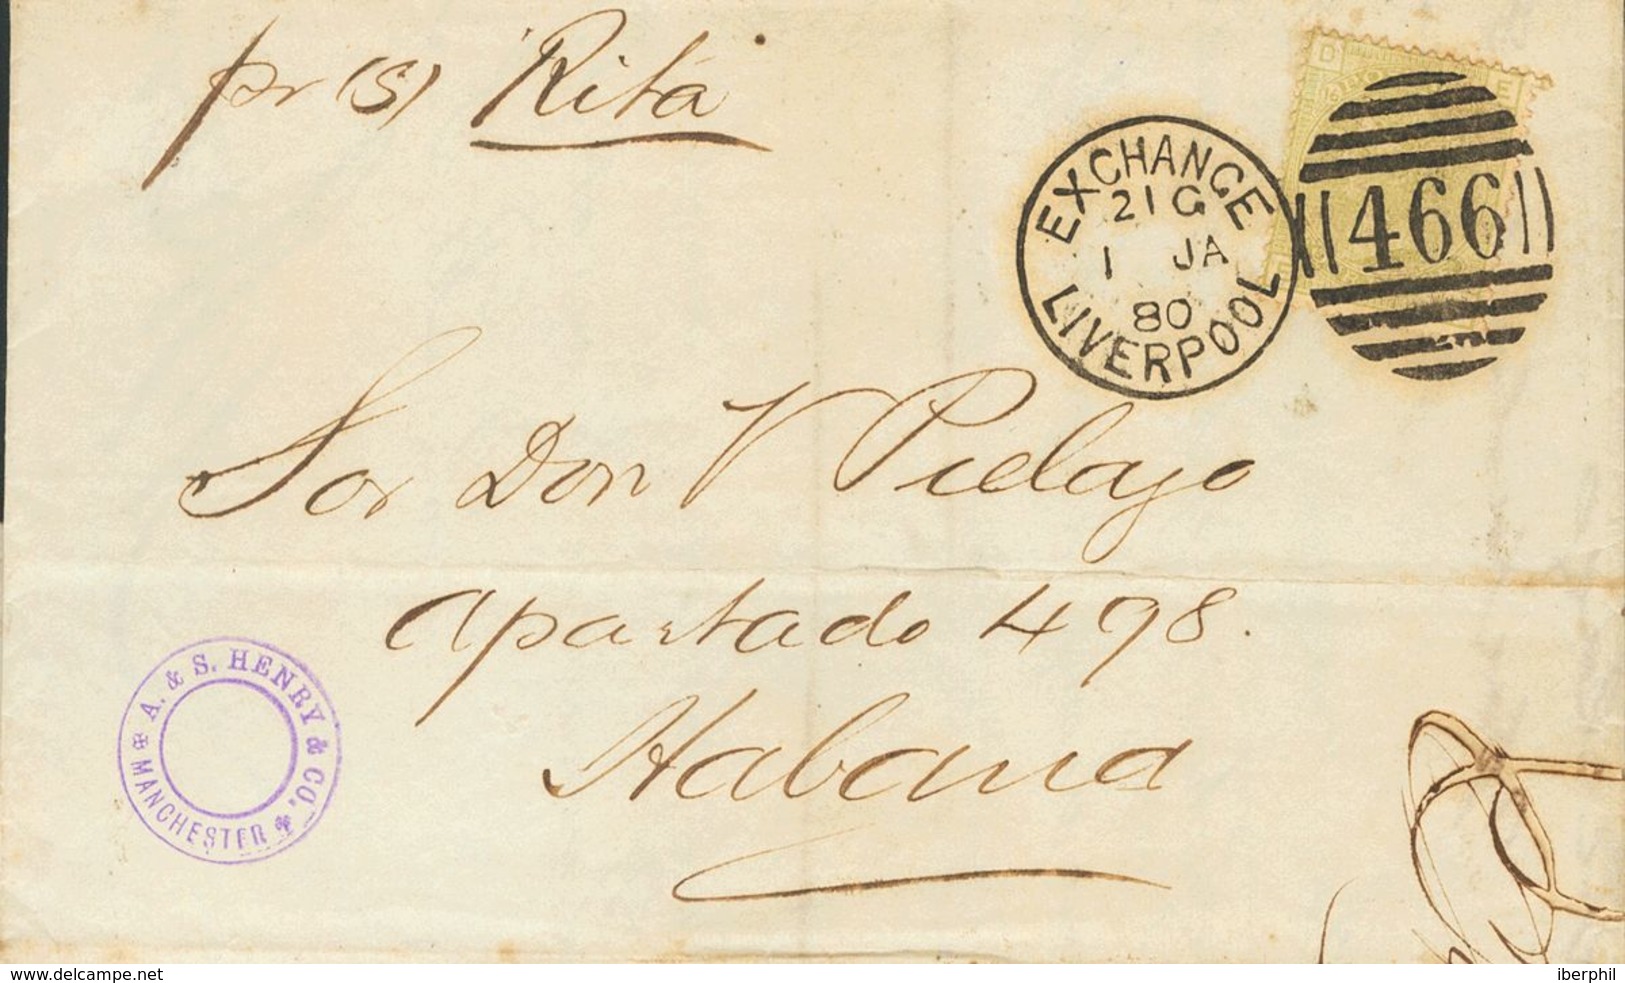 pr (S) "Rita"
EXCHANGE
21 G
1 JA
80
LIVERPOOL
D E
466
Sor Don V Pielago
Apartado 498.
Habana
A. & S. HENRY & CO.
MANCHESTER
www.delcampe.net
iberphil